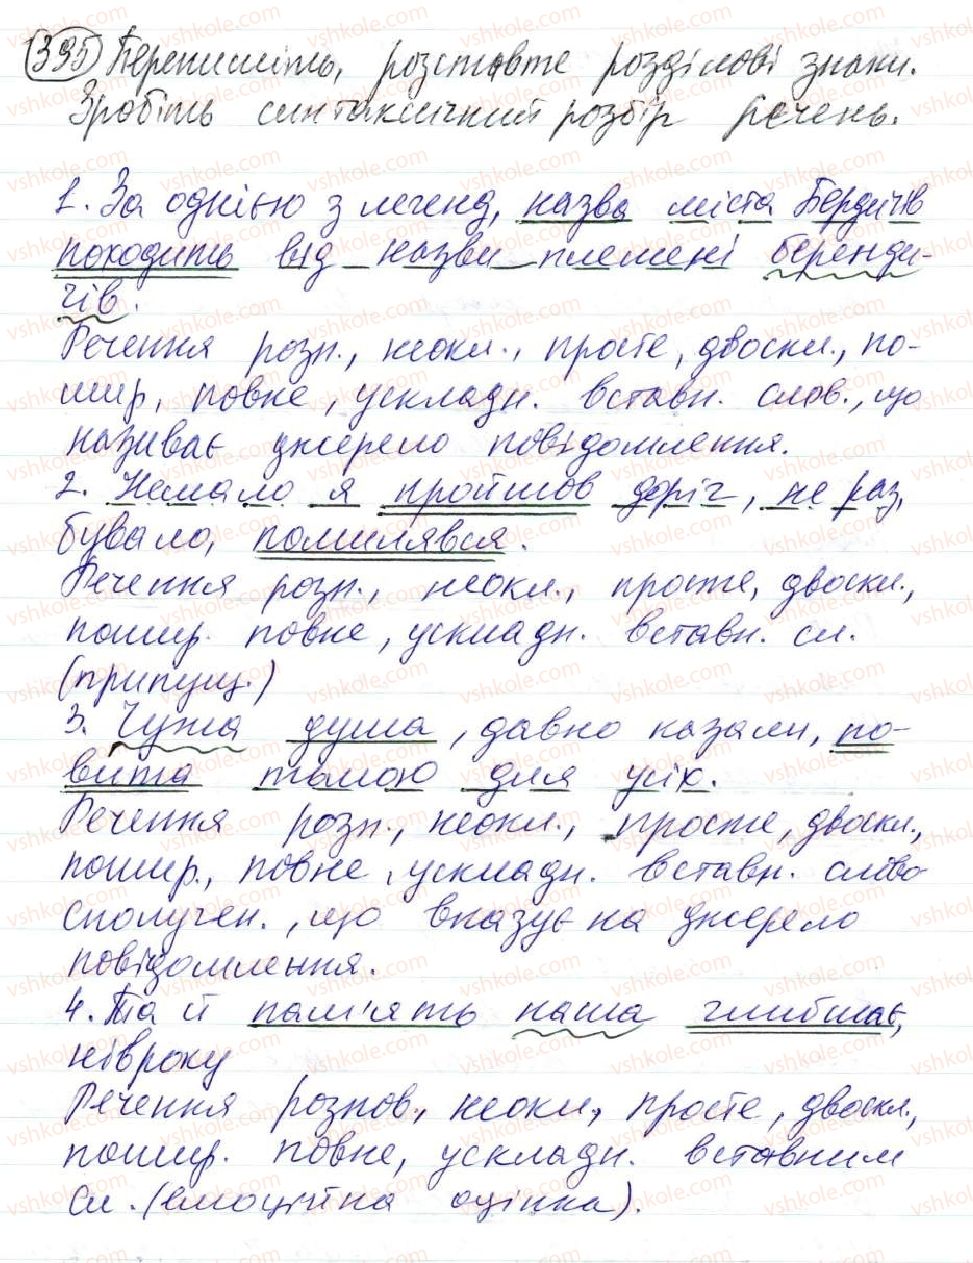 395 Перепишіть, розставте розділові знаки.
Зробіть синтаксичний розбір речень.
1. За однією з легенд, назва міста Бердичів
походить від назви племені беренди-
чів.
Речення розп., неокл., просте, двоскл., по-
шир., повне, ускладн. вставн. слов., що
називає джерело повідомлення.
2. Немало я пройшов доріг, не раз,
бувало, помилявся.
Речення розп., неокл., просте, двоскл.,
пошир. повне, ускладн. вставн. сл.
(припущ.)
3. Чужа душа, давно казали, по-
вита тьмою для усіх.
Речення розп., неокл., просте, двоскл.,
пошир., повне, ускладн. вставн. слово
сполучен., що вказує на джерело
повідомлення.
4. Та й пам'ять наша глибшає,
нівроку
Речення розпов., неокл., просте, двоскл.,
пошир. повне, ускладн. вставним
сл. (емоційна оцінка).